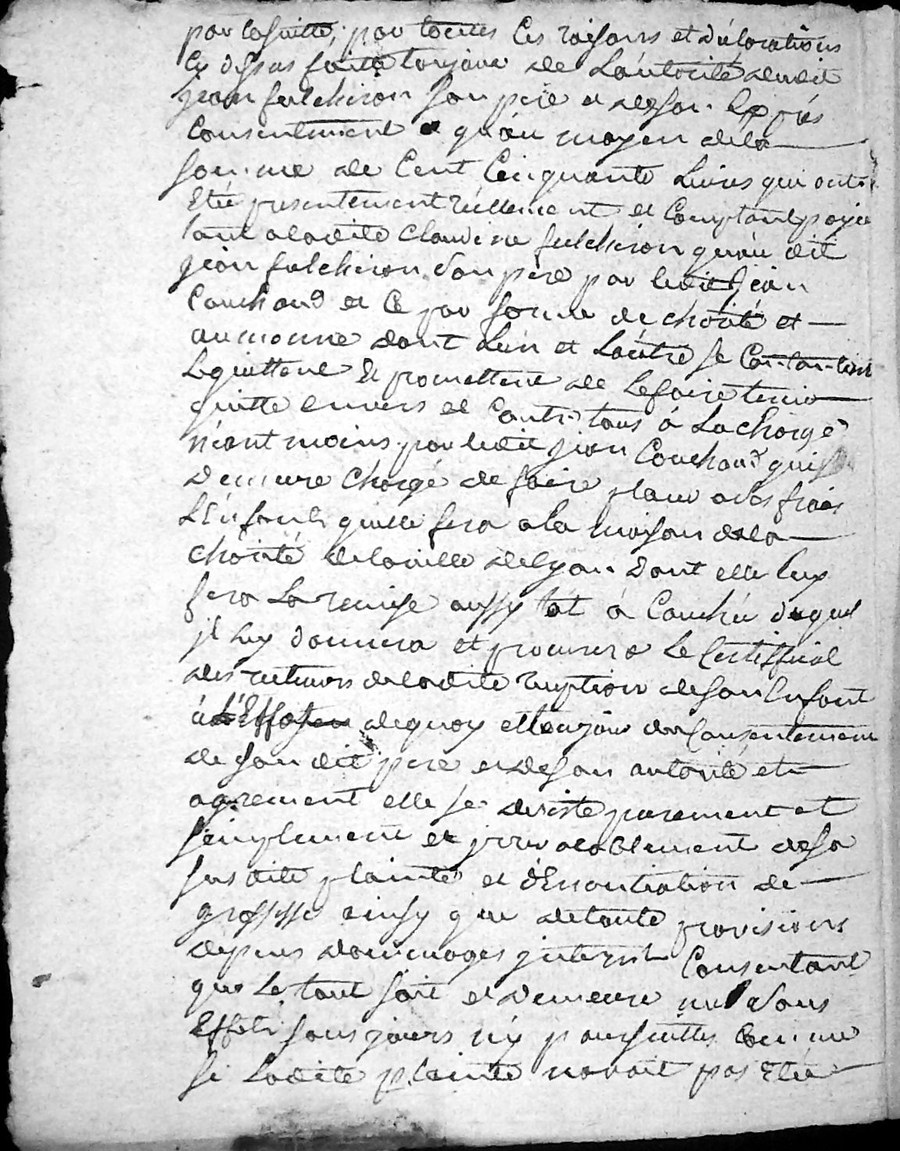 par la suitte, par toutes ces raisons et déclarations
cy dessus faitte toujour de Lautorité dudit
jean fulchiron son pere et de son Exprés
Consentement et qu'au moyen de la
somme de Cent Cinquante Livres qui ont
Eté presentement réellement et Comptant payé
tant a ladite Claudine fulchiron qu'au dit
jean fulchiron son pere par ledit jean
Couchoud et Ce par forme de charité et
aumonne dont Lun et Lautre se Contentent
Lequittent Et promettent de Lefaire tenir
quitte envers et Contre tous à La charge
néant moins par ledit jean Couchoud qui
Demeure chargé de faire placer a ses frais
L'Enfant quelle fera a la maison de la
charité de la ville de Lyon dont elle luy
fera La remise aussy tot à Couchée duquel
jl luy donnera et procurera Le Certifficat
des recteurs de ladite reception de son Enfant
au de quoy et toujour du Consentement
de son dit pere et de son autorité et
agrement elle se desiste purement et
simplement et jrrevocablement de sa
sus dite plainte et dénontiation de
grossesse ainsy que de toute provisions
depens dommages jnterest Consentant
que Le tout soit et Demeure nul et sans
Effets sans jours ny poursuittes Comme
si Ladite plainte n'avoit pas Eté